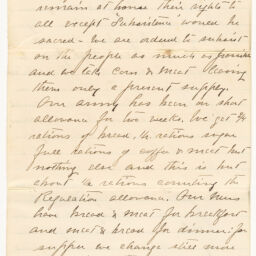 remain at home their rights to
all except Subsistence would be
sacred - We are ordered to subsist
on the people as much as possible
and we take Corn & meat leaving
them only a present supply.
Our army has been on short
allowance for two weeks. We get 3/4
rations of bread, 1/2 rations sugar
full rations of coffee & meat but
nothing else and this is but
about 1/2 rations counting the
Regulation allowance. Our Mess
have bread & meat for breakfast
and meat & bread for dinner: for
supper we change it is more